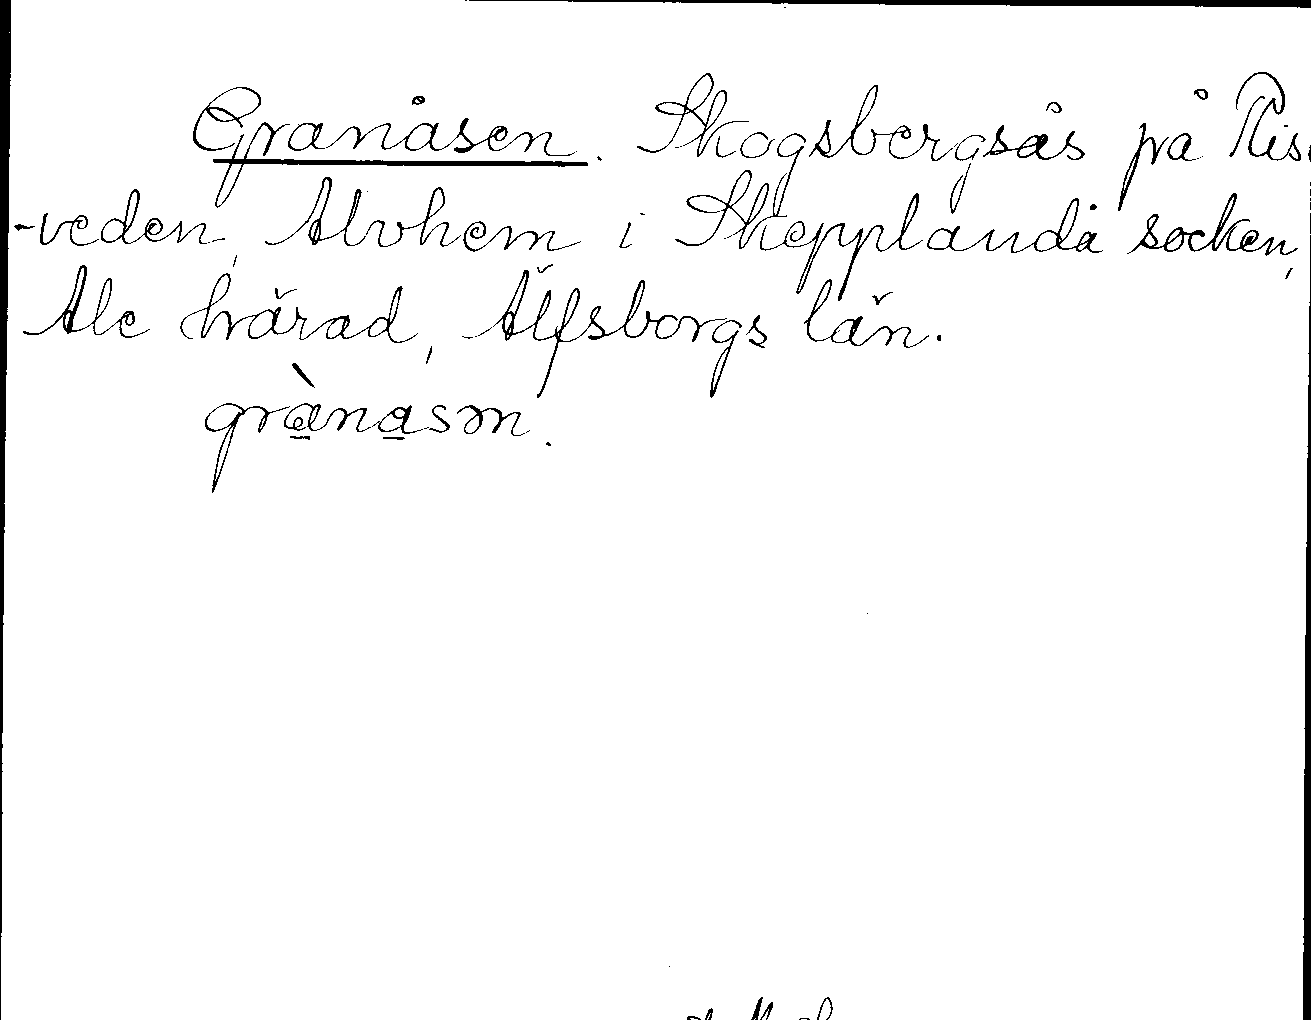 Granåsen. Skogsbergsås på Ris
-veden, Alvhem i Skepplanda socken,
Ale härad, Älfsborgs län.
grànasɘn.